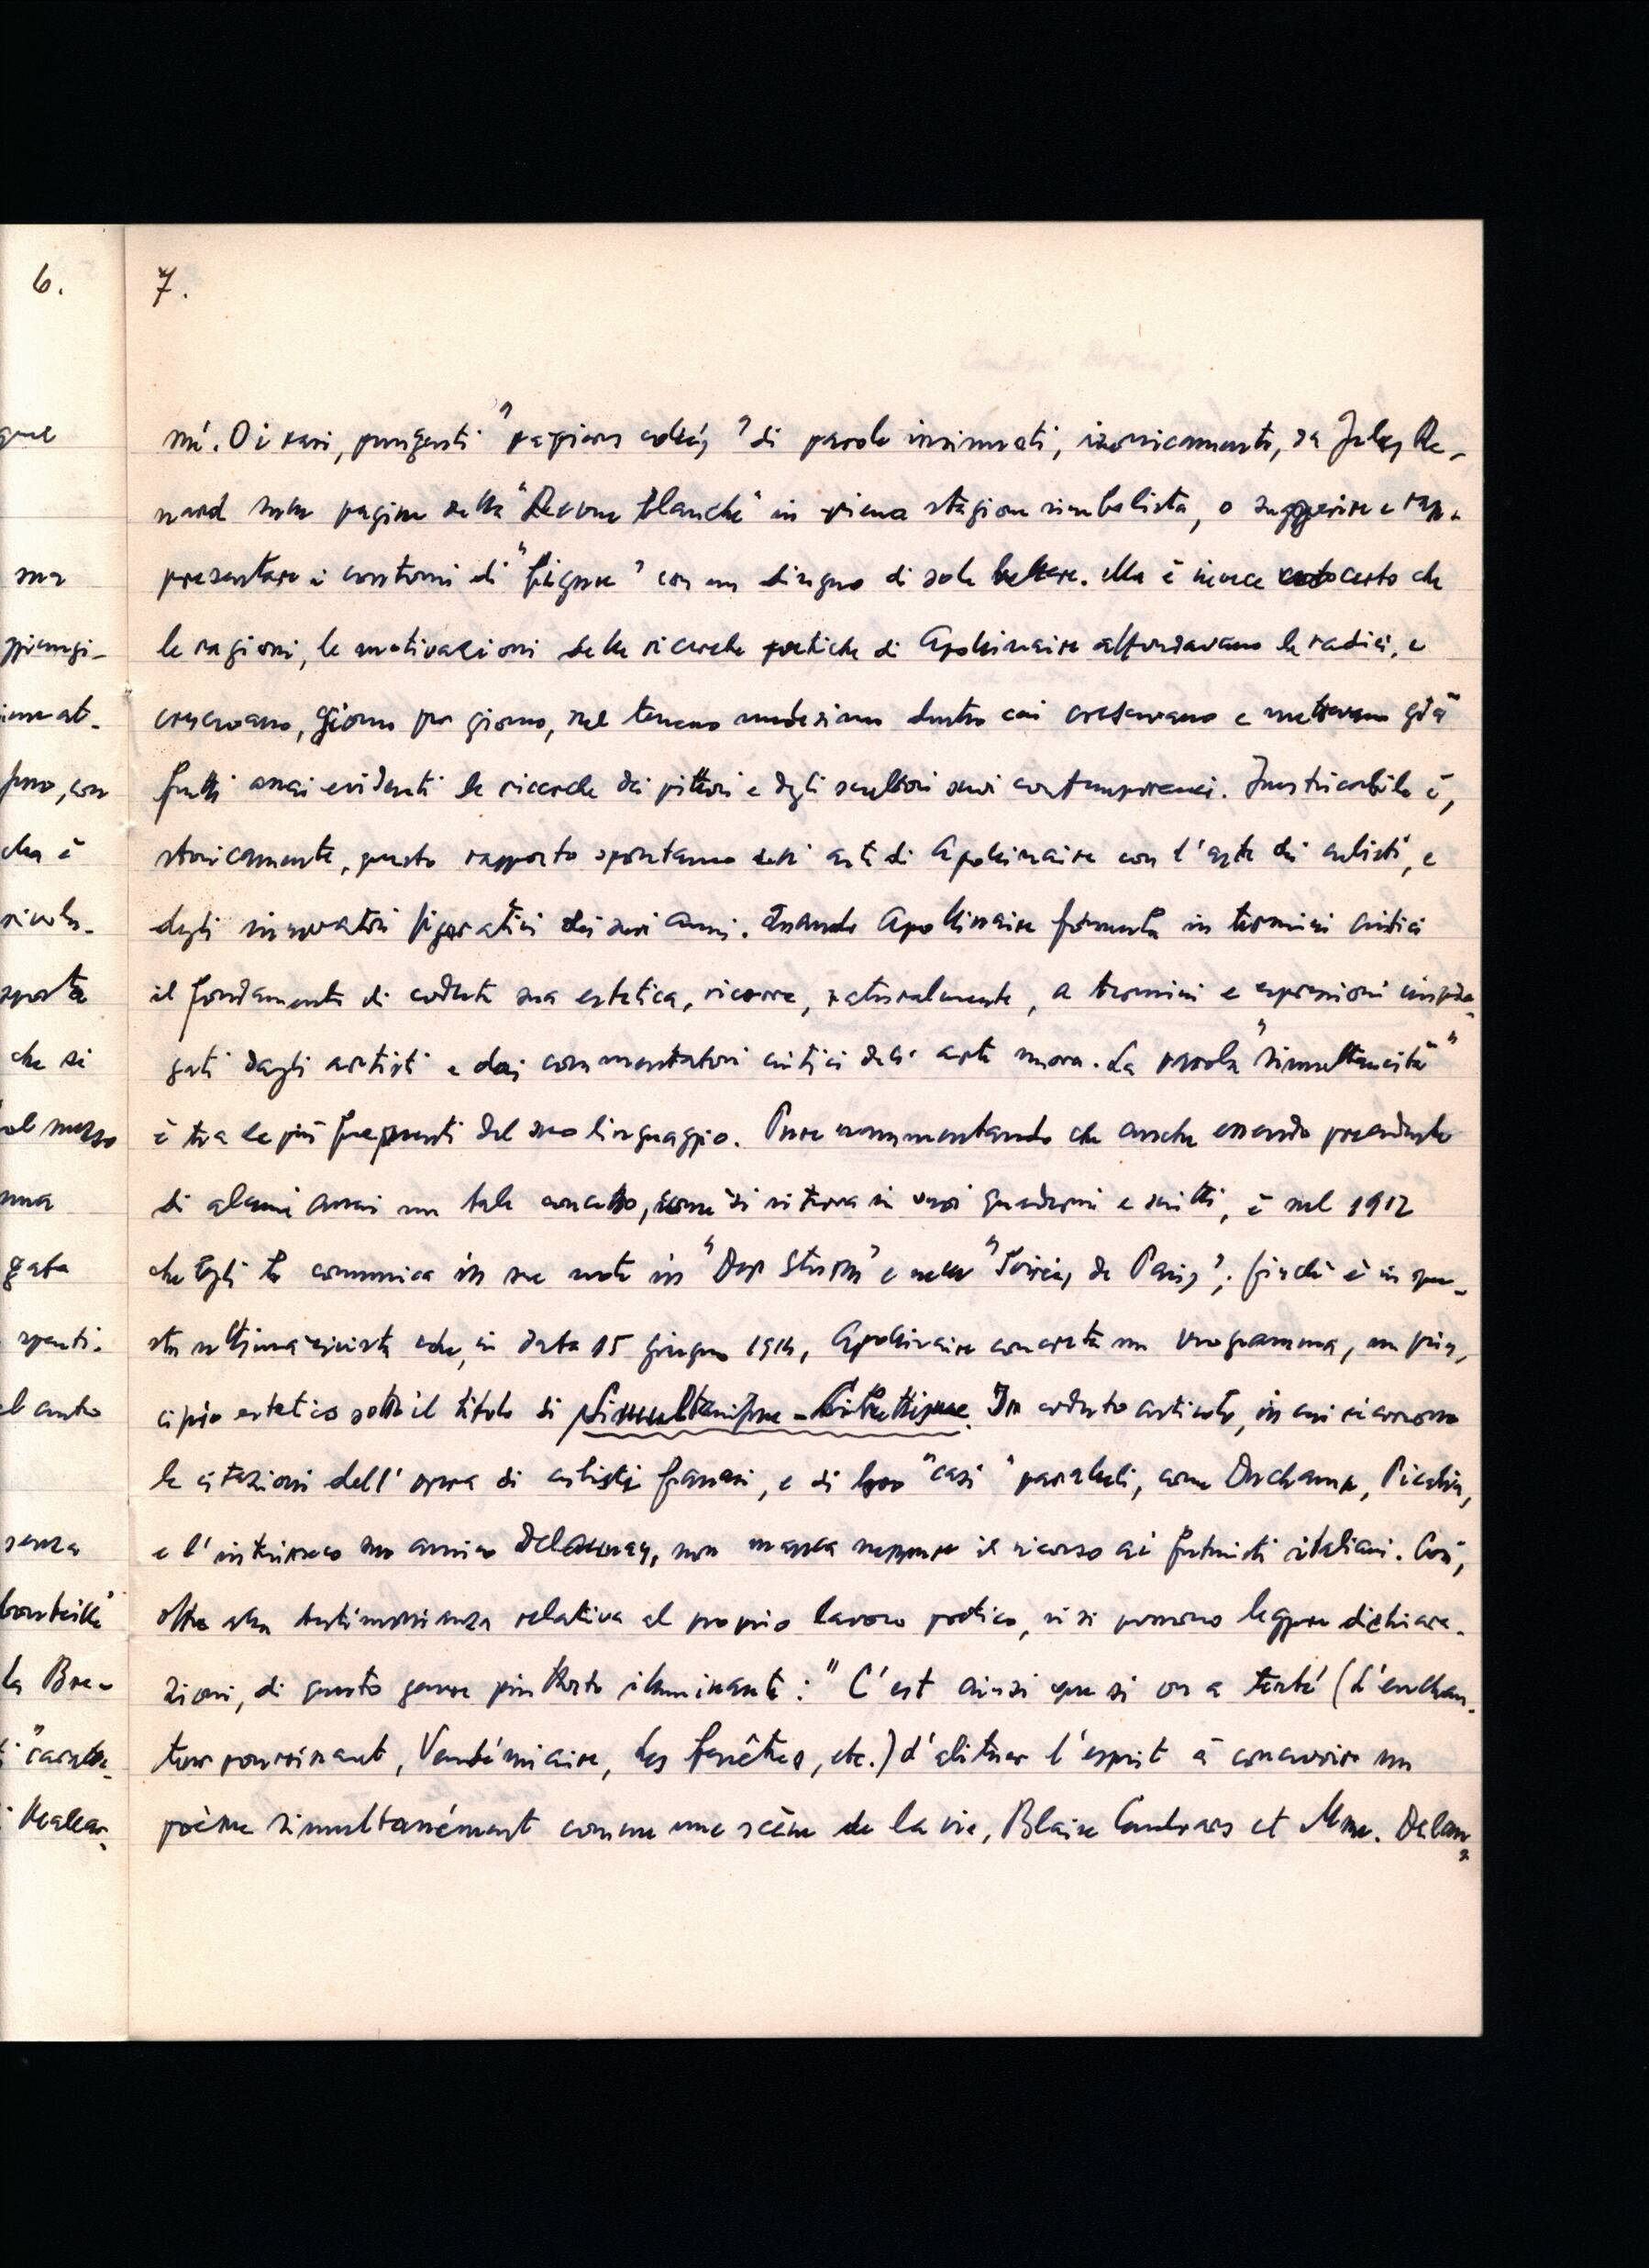 6.
que
ma
piangi-
imeat-
fino, con
che è
rivolu-
sposta
che si
al mezzo
una
gata
spenti.
el canto
senza
bouteille"
la Bre-
i "caratte-
7.
mé. O i rari, pungenti " di parole insinuati, ironicamente, da Jules Re-
nard sulle pagine della "Revue blanche" in piena stagione simbolista, o suggerire e rap-
presentare i contorni di "figure" con un disegno di sole lettere. Ma è invece certo che
le ragioni, le motivazioni delle ricerche poetiche di Apollinaire affondavano le radici, e
crescevano, giorno per giorno, nel terreno medesimo dentro cui crescevano e mettevano già
frutti assai evidenti le ricerche dei pittori e degli scultori suoi contemporanei. Inestricabile è,
storicamente, questo rapporto spontaneo dell'arte di Apollinaire con l'arte dei cubisti, e
degli innovatori figurativi dei suoi anni. Quando Apollinaire formula in termini critici
il fondamento di codesta sua estetica, ricorre, naturalmente, a termini e espressioni impie-
gati dagli artisti e dai commentatori critici dell'arte nuova. La parola "simultaneità"
è tra le più frequenti del suo linguaggio. Pure rammentando che anche essendo precedente
di alcuni anni un tale concetto, come si ritrova in suoi quaderni e scritti, è nel 1912
che egli lo comunica in sue note in "Der Sturm" e nelle "Soirées de Paris"; finché è in que-
sta ultima rivista che, in data 15 giugno 1914, Apollinaire concreta un programma, un prin-
cipio estetico sotto il titolo di Simultanisme-Librettisme. In codesto articolo, in cui ricorrono
le citazioni dell'opera di cubisti francesi, e di loro "casi" paralleli, come Duchamp, Picabia,
e l'intrinseco suo amico Delaunay, non manca neppure il ricorso ai futuristi italiani. Così,
oltre alla testimonianza relativa al proprio lavoro poetico, vi si possono leggere dichiara-
zioni, di questo genere piuttosto illuminante: "C'est ainsi que si on a tenté (L'enchan-
teur pourrissant, Vendémiaire, Les fenêtres, etc.) d'abituer l'esprit à concevoir un
poème simultanément comme une scène de la vie, Blaise Cendrars et Mme. Delau-